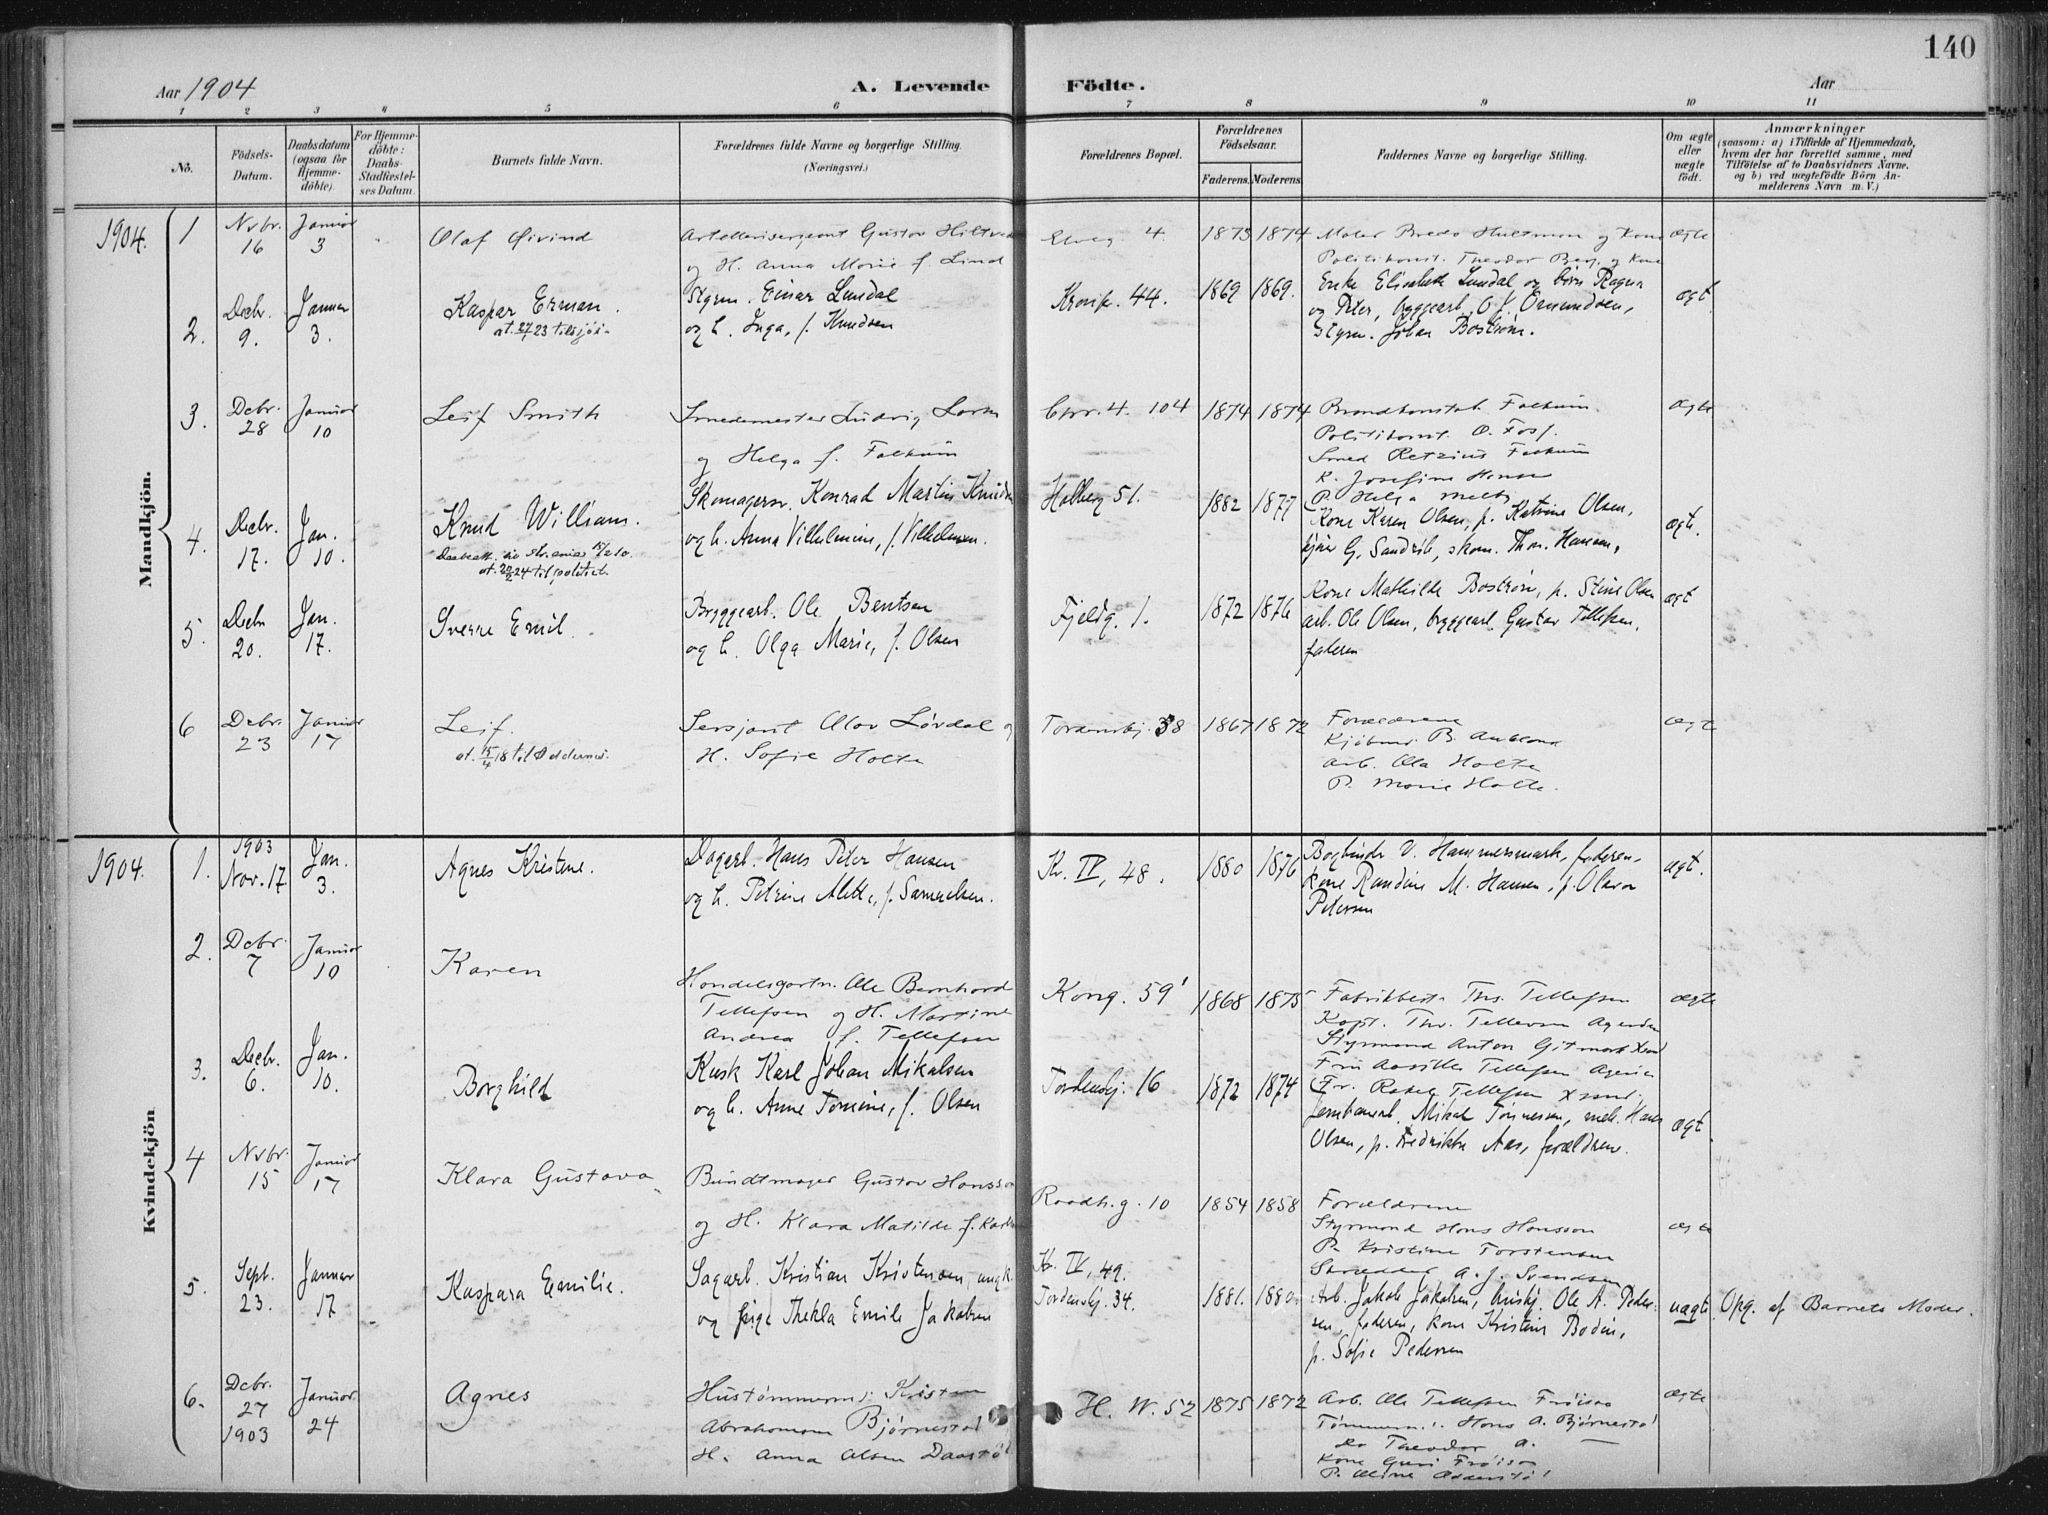 140
Aar 1904
A. Levende
Födte.
Aar
1 2 3 4 5 6 7 8 9 10 11
No.
Födsels-Datum.
Daabsdatum (ogsaa for Hjemme-döbte).
For Hjemme-döbte: Daabs-Stadfæstel-ses Datum.
Barnets fulde Navn.
Forældrenes fulde Navne og borgerlige Stilling.
(Næringsvei.)
Forældrenes Bopæl.
Forældrenes Födselsaar.
Faderens. Moderens.
Faddernes Navne og borgerlige Stilling.
Om ægte eller uægte födt.
Anmærkninger
(saasom: a) i Tilfælde af Hjemmedaab, hvem der har forrettet samme, med Tilföielse af to Daabsvidners Navne, og b) ved uægtefödte Börn An-melderens Navn m. V.)
Mandkjön.
1904.
1 Nvbr. 16 Januar 3 Olaf Øivind
Artellerisergeant Gustav
og H. Anna Marie f. Lind
Elveg. 4 1873 1874
Maler Bredo Hultman og Kone
Politikonst. Theodor Berg og Kone
ægte
2. Decbr. 9. Januar 3. Kaspar Erman.
at. 27/ 23 til sjøi-
Styrm. Einar Lundal
og h. Inga, f. Knudsen
Kronpr. 44. 1869 1869.
Enke Elisabeth Lundal og børn Ragna
og Peter, bryggearb. O. J. Omundsen,
Styrm. Johan Bostrøm.
ægt.
3. Dcbr. 28 Januar 10 Leif Smith
Smedemester Ludvig
og Helga f. Falkum
Chr. 4. 104 1874 1874
Brandkonstab. Falkum.
Politikonst. O. Foss.
Smed Retzius Falkum
K. Josefine Hansen
P. Helga Melby
ægte
4. Decbr. 17. Jan. 10. Knud William.
at. 22/2 24 til politiet.
Skomagersv. Konrad Martin Knudsen
og h. Anna Vilhelmine, f. Vilhelmsen.
Holberg 51. 1882 1877
Kone Karen Olsen, p. Katrine Olsen,
G. Sandvik, skom. Thom. Hansen,
ægte.
5. Decbr 20. Jan. 17. Sverre Emil.
Bryggearb. Ole Bentsen
og h. Olga Marie, f. Olsen
Fjeldg. 1. 1872 1876
Kone Mathilde Bostrøm, p. Stine Olsen
arb. Ole Olsen, bryggearb. Gustav Tellefsen,
faderen
ægt
6 Dcbr. 23 Januar 17 Leif.
at. 15/4 18 til Oddernes.
Sersjant Olav Løvdal og
H. Sofie Holte
Tordenskj. 38 1867 1872
Forældrene
Kjøbm. B.
Arb. Ola Holte
P. Marie Holte.
ægte
Kvindekjön
1904.
1. 1903 Nov. 17. Jan. 3. Agnes Kristene.
Dagarb. Hans Peter Hansen
og h. Petrine Alette, f. Samuelsen.
Kr. IV, 48. 1880 1876
Bogbinder V. Hammersmark, faderen,
kone Randine M. Hansen, p. Olava
Petersen
ægt.
2. Dcbr. 7 Januar 10 Karen
Handelsgartn. Ole Bernhard
Tellefsen og H. Martine
Andrea f. Tellefsen
Kong. 59 1868 1875
Fabrikbest. Ths. Tellefsen
Kapt. Thv. Tellefsen
Styrmand Anton Gitmark
Fru Tellefsen
Fr. Rakel Tellefsen
ægte
3. Decbr. 6. Jan. 10. Borghild
Kusk Karl Johan Mikalsen
og h. Anne Tomine, f. Olsen
Tordenskj. 16 1872 1874
Jernbanearb. Mikal Tønnesen, Hans
Olsen, p. Fredrikke Aas, forældren.
ægt.
4 Nvbr. 15 Januar 17 Klara Gustava
Bundtmager Gustav Hansson
og H. Klara Matilde f.
Raadh. g. 10 1854 1858
Forældrene
Styrmand Hans Hansson
P. Kristine Torstensen
Skrædder A. J. Svendsen
ægte
5. Sept. 23. Januar 17 Kaspara Emilie.
Sagarb. Kristian Kristensen, ungk.
og pige Thekla Emilie Jakobsen
Kr. IV, 49.
Tordenskj. 34. 1881. 1880.
Arb. Jakob Jakobsen, Ole A. Peder-
sen, faderen, kone Kristine Bodin,
p. Sofie Pedersen
uægte
Opg. af Barnets Moder.
6. Dcbr. 27 1903 Januar 24 Agnes
Hustømmerm. Kristen
Abrahamsen Bjørnestøl
H. Anna Olsen
H. W. 52 1875 1872
Arb. Ole Tellefsen Frøisaa
Tømmerm. Hans A. Bjørnestøl
do Theodor A. —
Kone Guri Frøisaa
P. Aline
ægte